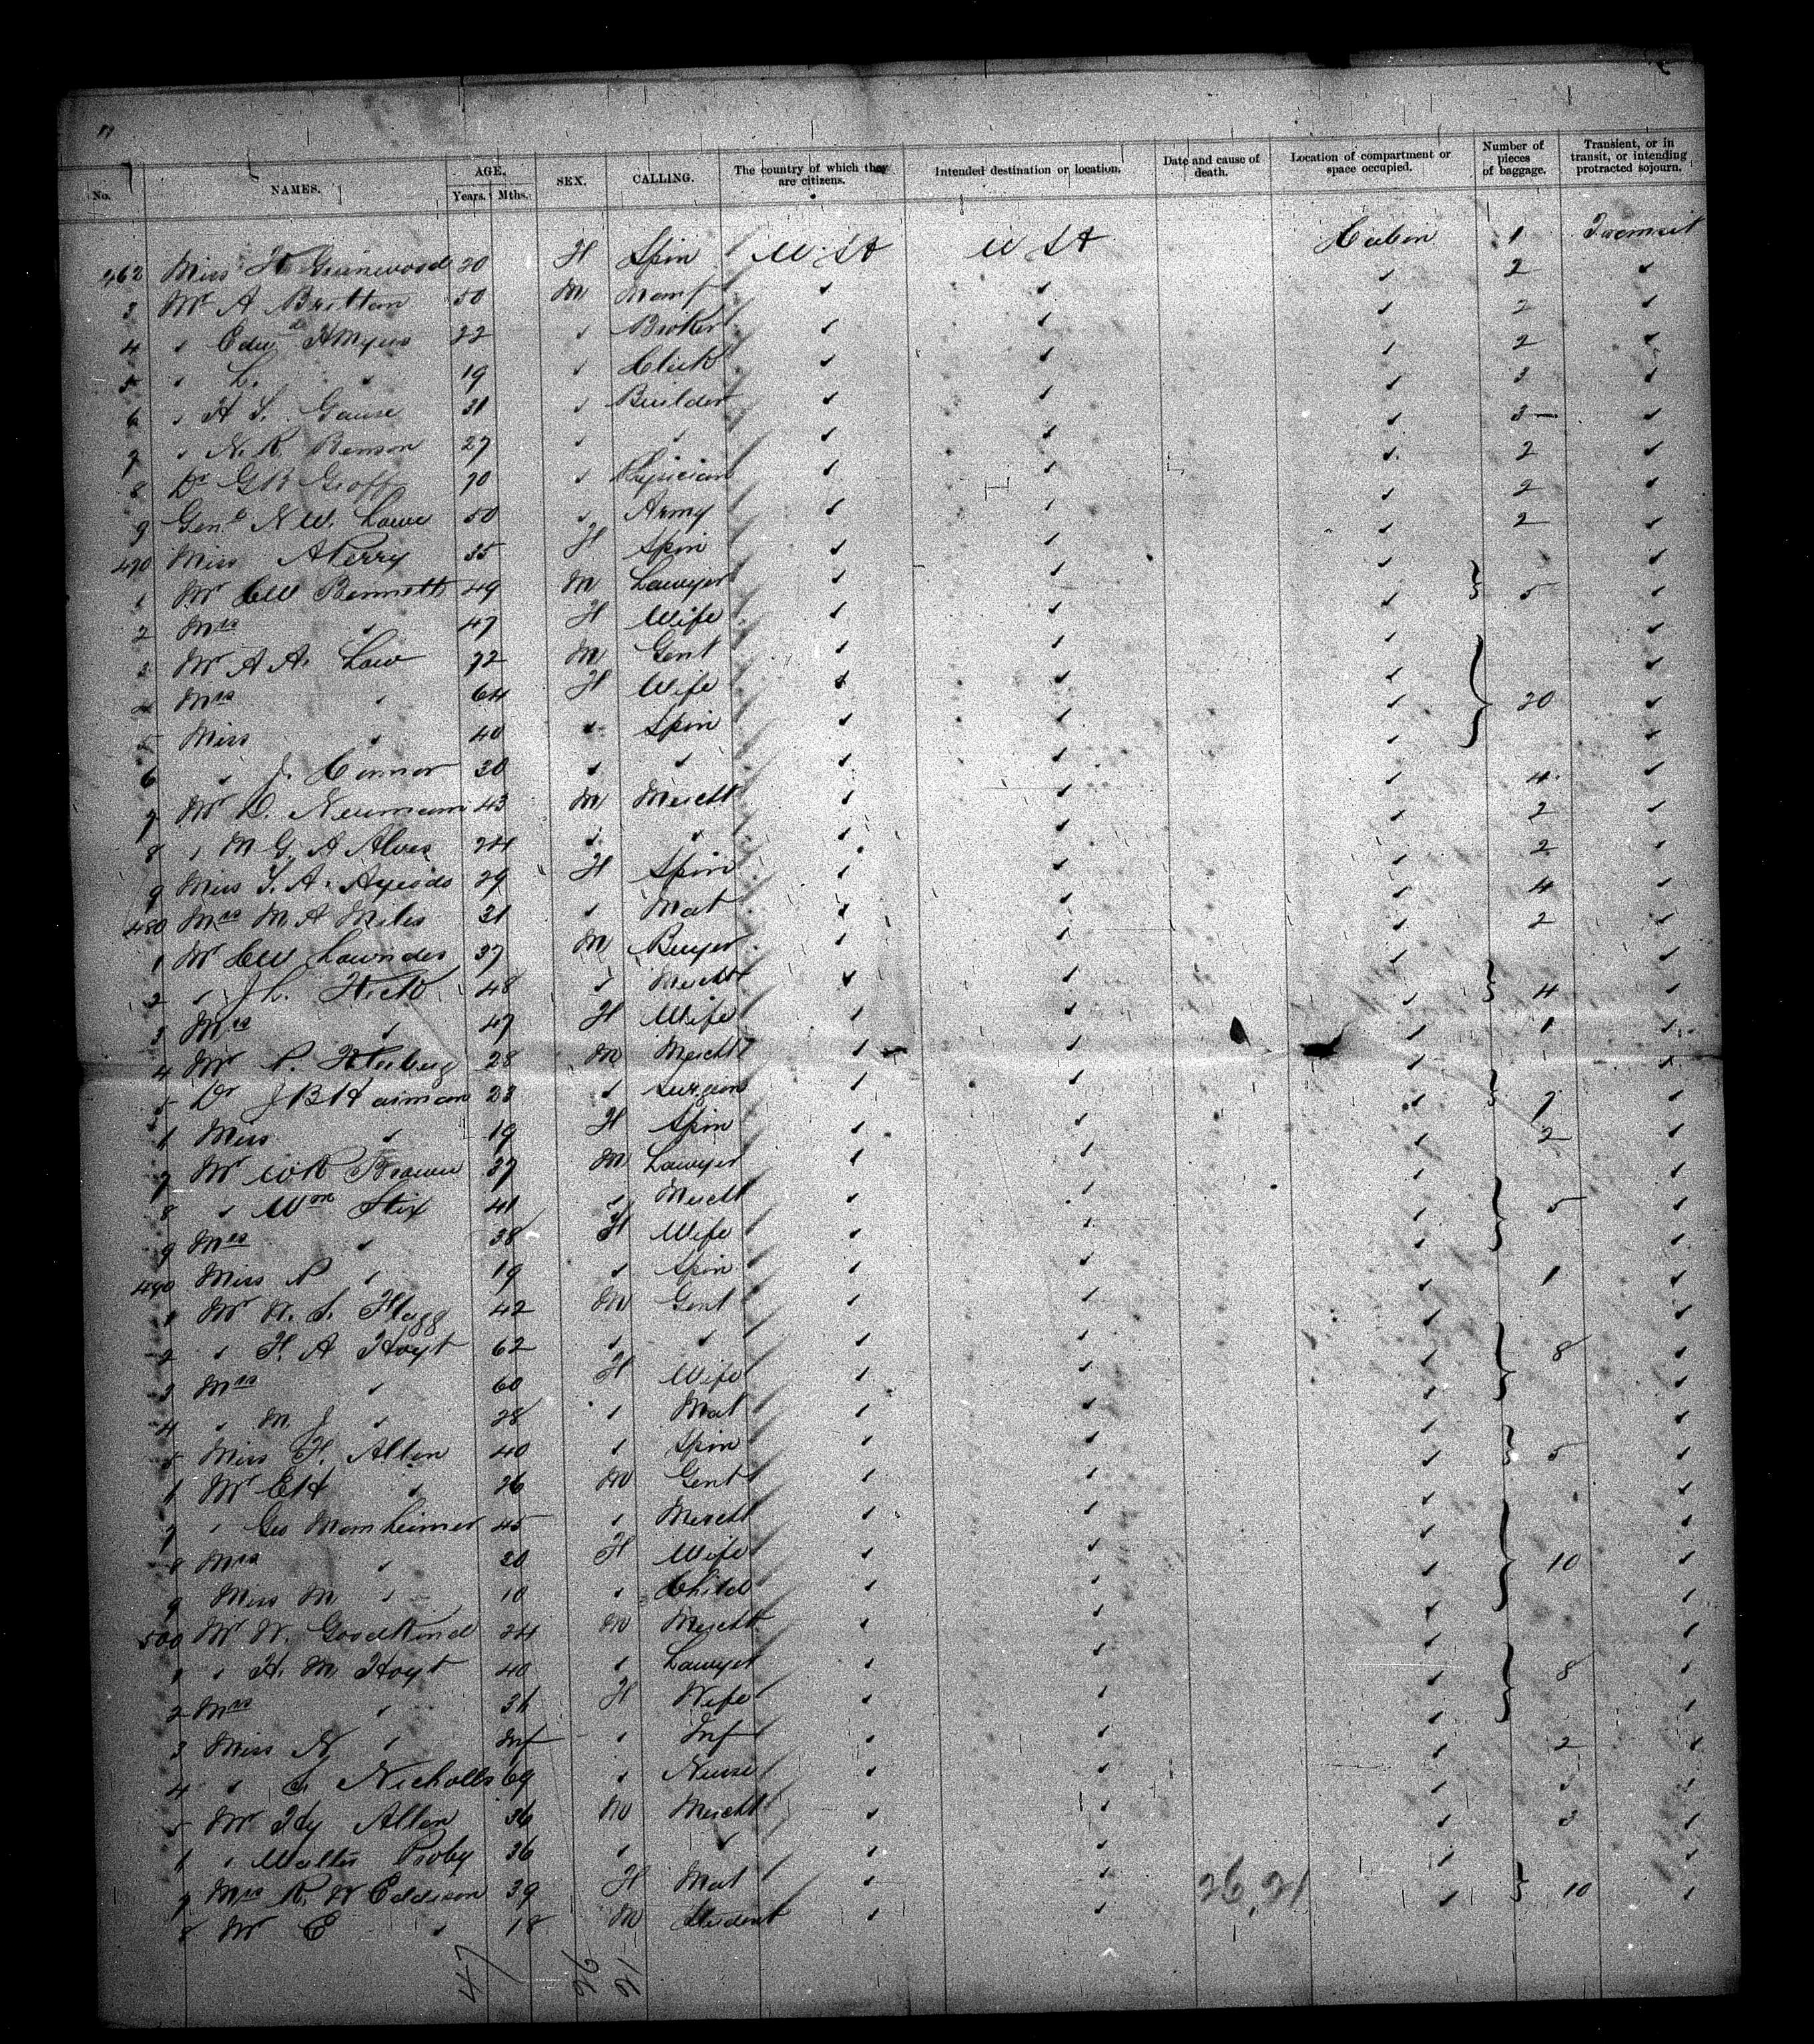 No. NAMES. AGE. Years. Mths. SEX. CALLING. The country of which they are citizens. Intended destination or location. Date and cause of death. Location of compartment or space occupied. Number of pieces of baggage. Transient, or in transit, or intending protracted sojourn.
462 Miss H Greenwood 20 F Spin U St U St Cabin 1 Transit
3 Mr A Brittan 50 M Manf ✓ ✓ ✓ 2 ✓
4 ✓ Edwd H Myers 22 ✓ Broker ✓ ✓ ✓ 2 ✓
5 ✓ L. ✓ 19 ✓ Clerk ✓ ✓ ✓ 2 ✓
6 ✓ H S. Gause 31 ✓ Builder ✓ ✓ ✓ 3 ✓
7 ✓ N. R. Benson 27 ✓ ✓ ✓ ✓ ✓ 3 ✓
8 Dr G B Groff 70 ✓ Physician ✓ ✓ ✓ 2 ✓
9 Genl N W. Lowe 50 ✓ Army ✓ ✓ ✓ 2 ✓
470 Miss A Perry 35 F Spin ✓ ✓ ✓ 2 ✓
1 Mr C W Bennett 49 M Lawyer ✓ ✓ ✓
2 Mrs ✓ 47 F Wife ✓ ✓ ✓ 5 ✓
3 Mr A A. Low 72 M Gent ✓ ✓ ✓ ✓
4 Mrs ✓ 64 F Wife ✓ ✓ ✓ ✓
5 Miss ✓ 40 ✓ Spin ✓ ✓ ✓ 20 ✓
6 ✓ J. Connor 30 ✓ ✓ ✓ ✓ ✓ ✓
7 Mr D. Neumann 43 M Mercht ✓ ✓ ✓ 4 ✓
8 ✓ M G. A Alves 24 ✓ ✓ ✓ ✓ ✓ 2 ✓
9 Miss S. A. 29 F Spin ✓ ✓ ✓ 2 ✓
480 Mrs M A Miles 31 ✓ Mat ✓ ✓ ✓ 4 ✓
1 Mr C W Lowndes 37 M Buyer ✓ ✓ ✓ 2 ✓
2 ✓ J L. 48 ✓ Mercht ✓ ✓ ✓ ✓
3 Mrs ✓ 47 F Wife ✓ ✓ ✓ 4 ✓
4 Mr P. 28 M Mercht ✓ ✓ ✓ 1 ✓
5 Dr J B Haiman 23 ✓ Surgeon ✓ ✓ ✓ ✓
Miss ✓ 19 F Spin ✓ ✓ ✓ 7 ✓
7 Mr W R Brown 37 M Lawyer ✓ ✓ ✓ 2 ✓
8 ✓ Wm Stix 41 ✓ Mercht ✓ ✓ ✓ ✓
9 Mrs ✓ 38 F Wife ✓ ✓ ✓ 5 ✓
490 Miss P ✓ 19 ✓ Spin ✓ ✓ ✓ ✓
1 Mr W. S. Flagg 42 M Gent ✓ ✓ ✓ 1 ✓
2 ✓ F. A Hoyt 62 ✓ ✓ ✓ ✓ ✓ ✓
3 Mrs ✓ 60 F Wife ✓ ✓ ✓ 8 ✓
4 ✓ M. J ✓ 28 ✓ Mat ✓ ✓ ✓ ✓
5 Miss F. Allen 40 ✓ Spin ✓ ✓ ✓ ✓
Mr E H ✓ 26 M Gent ✓ ✓ ✓ 5 ✓
7 ✓ Geo Mamheimer 45 ✓ Mercht ✓ ✓ ✓ ✓
8 Mrs ✓ 30 F Wife ✓ ✓ ✓ 10 ✓
9 Miss M ✓ 10 ✓ Child ✓ ✓ ✓ ✓
500 Mr W. Goodkind 24 M Mercht ✓ ✓ ✓ ✓
1 ✓ H. M Hoyt 40 ✓ Lawyer ✓ ✓ ✓ ✓
2 Mrs ✓ F Wife ✓ ✓ ✓ 8 ✓
3 Miss N ✓ Inf ✓ Inf ✓ ✓ ✓ ✓
4 ✓ S. Nicholls 69 ✓ Nurse ✓ ✓ ✓ 2 ✓
5 Mr Hy Allen 36 M Mercht ✓ ✓ ✓ ✓
✓ Walter Proby 36 ✓ ✓ ✓ ✓ ✓ 3 ✓
7 Mrs R. W Eddison 39 F Mat ✓ ✓ ✓
8 Mr E ✓ 18 M Student ✓ ✓ ✓ 10 ✓
26,21
47 26 21